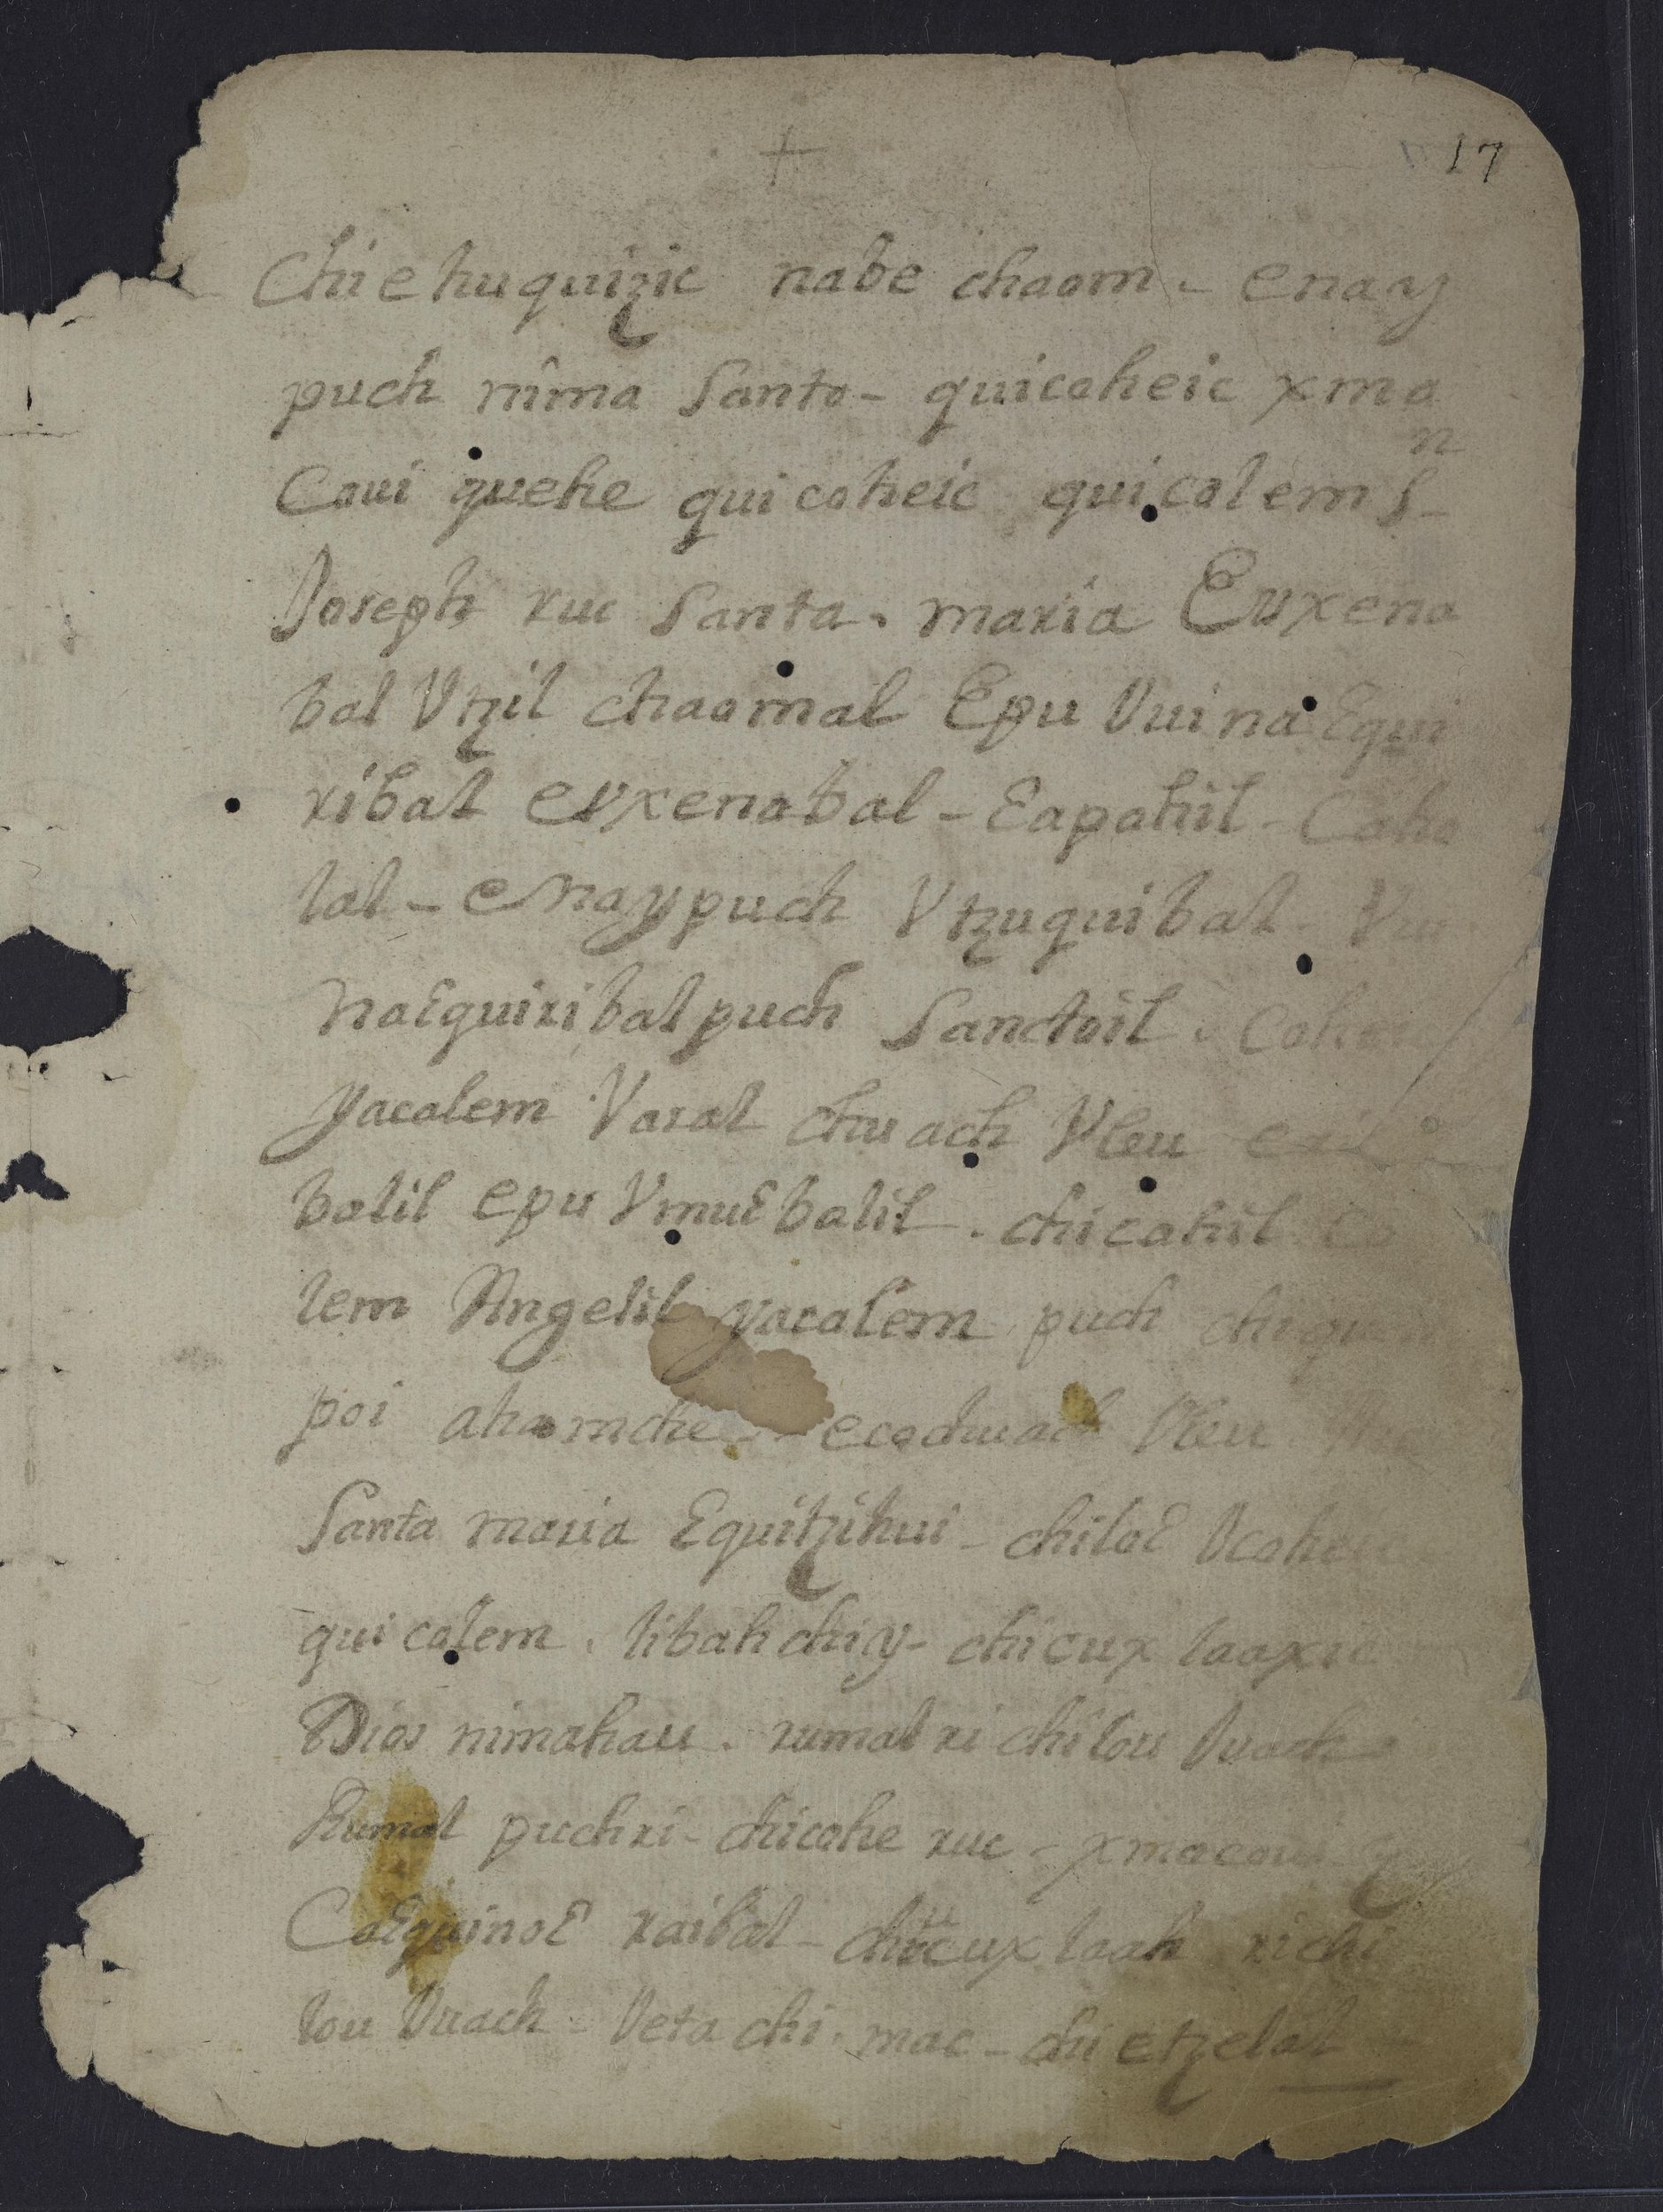 +
17
Chiehuquizic nabe chaom - enay
puch nima Santo - quicoheic xma
n
Coui quehe quicoheic quicolem S_
Joseph ruc Santa. maria Euxena
bal Vtzil chaomal Epu Vuinaεqui
ribal euxenabal - Eapahil - Coho
lal - enaypuch Vtzuquibal Vui
naεquiribal puch Sanctoil. Coh
yacalem Varal chuach Vleu
balil epu Vmuεbalil. chicahil Co
lem Angelil yacalem puch chiqu
poi ahamche ecochuach Vleu
Santa maria εquitzihui - chiloε Vcohei
quicolem. libahchiy - chicuxlaaxic
Dios nimahau. rumal ri chilou Vuach
Rumal puchri - chicohe ruc - xmacoui
Coεquinoε raibal - chucuxlaah richi
lou Vuach - Veta chi. mac - chi etzelal